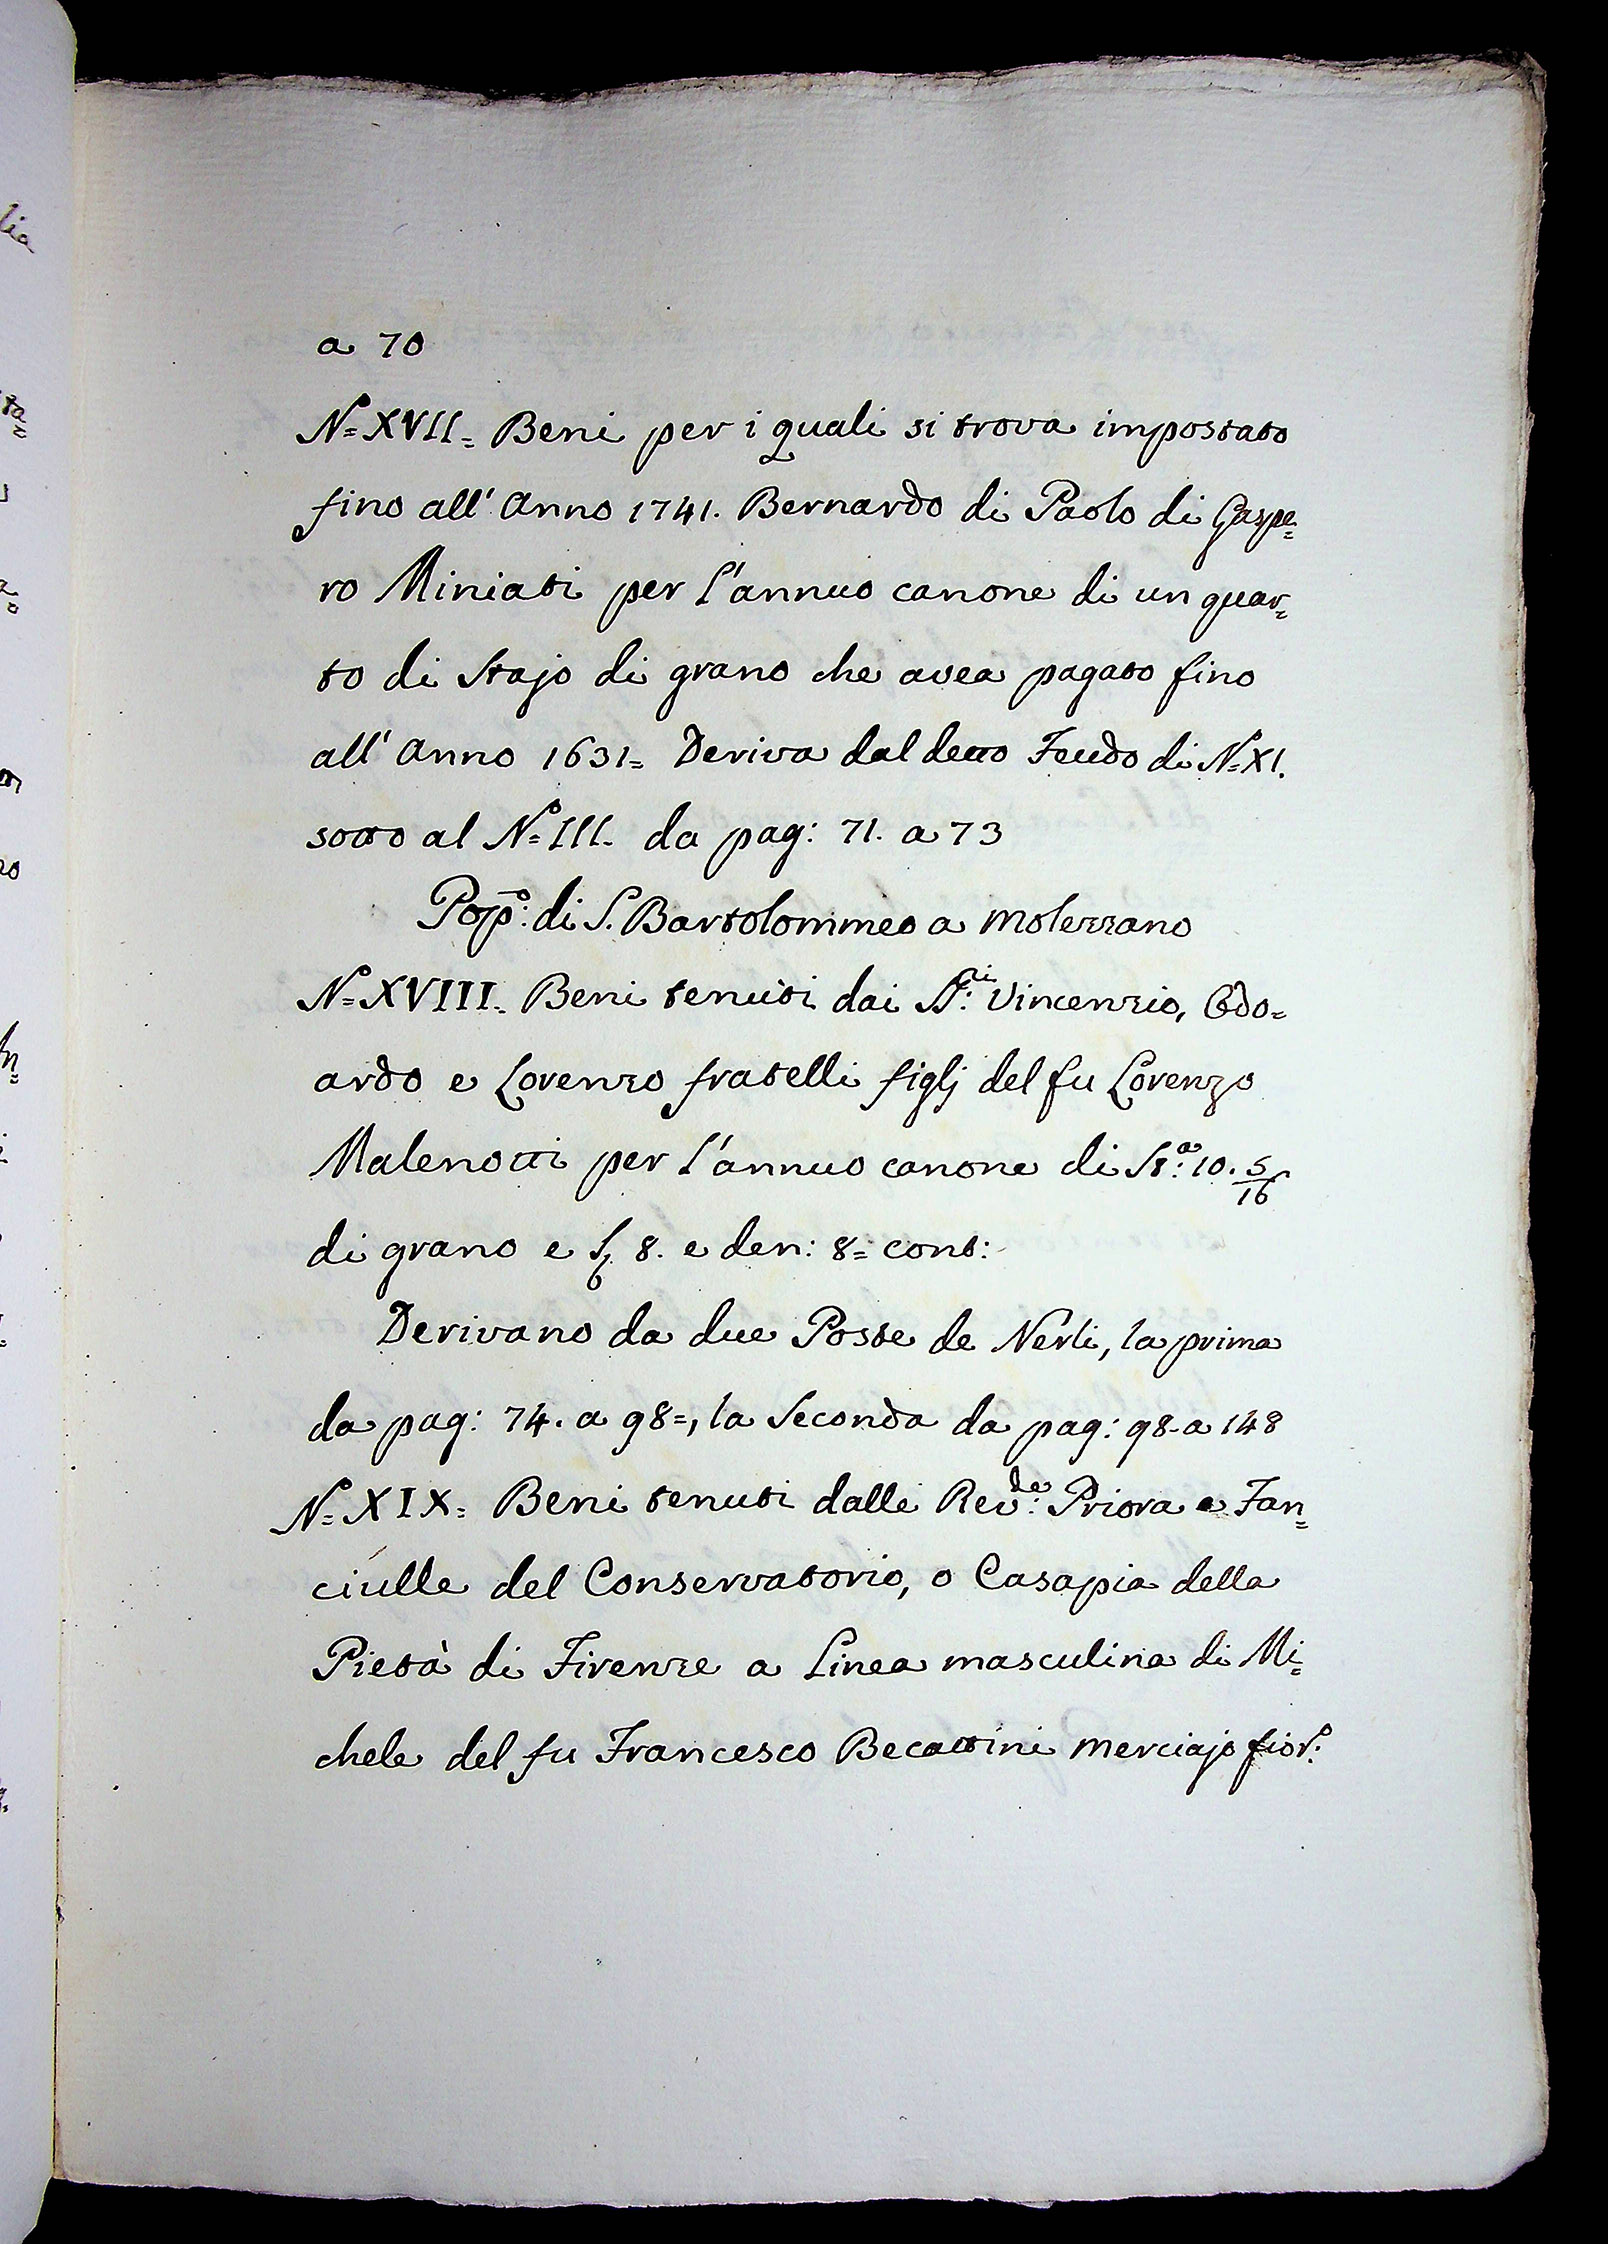 a 70
N.º XVII= Beni per i quali si trova impostato
fino all' Anno 1741. Bernardo di Paolo di Gaspe=
ro Miniati per l'annuo canone di un quar=
to di Stajo di grano che avea pagato fino
all' Anno 1631= Deriva dal detto Feudo di N.º XI.
sotto al N.º III. da pag: 71. a 73
Pop.º: di S. Bartolommeo a Molezzano
N.º XVIII. Beni tenuti dai SS.ri: Vincenzio, Odo=
ardo e Lorenzo fratelli figlj del fu Lorenzo
Malenotti per l'annuo canone di St.a: 10. 5/16
di grano e ß 8. e den: 8= cont:
Derivano da due Poste de Nerli, la prima
da pag: 74. a 98=, la Seconda da pag: 98. a 148
N.º XIX= Beni tenuti dalle Rev.de: Priora e Fan=
ciulle del Conservatorio, o Casapia della
Pietà di Firenze a Linea masculina di Mi=
chele del fu Francesco Becattini merciajo fior.º:
lia
ta=
no